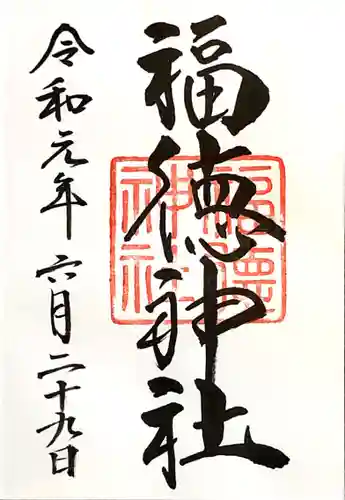 福徳神社
福徳神社
令和元年六月二十九日